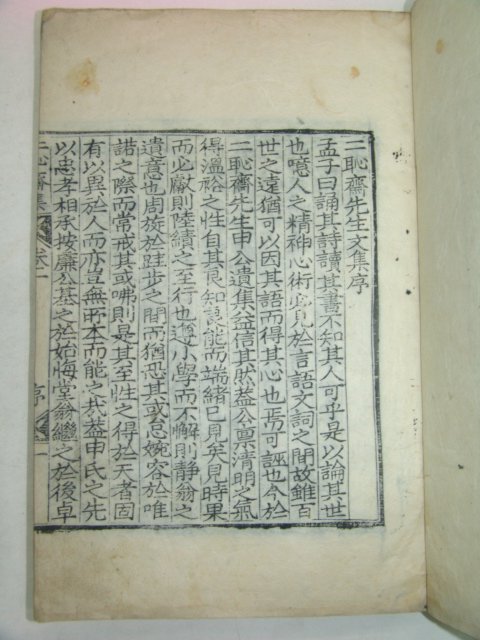 二恥齋先生文集序
孟子曰誦其詩讀其書不知其人可乎是以論其世
也噫人之精神心術必見於言語文詞之間故雖百
世之遠猶可以因其語而得其心也焉可誣也今於
二恥齋先生申公遺集益信其然盖公禀清明之氣
得溫裕之性自其良知良能而端緒已見矣見時果
而必獻則陸績之至行也遵小學而不解則靜翁之
遺意也周旋於跬步之間而猶恐其或怠婉容於唯
諾之際而常戒其或咈則是其至性之得於天者固
有以異於人而亦豈無所本而能之哉盖申氏之先
以忠孝相承按廉公基之於始悔堂翁繼之於後卓
二恥齋集 卷一 序 一